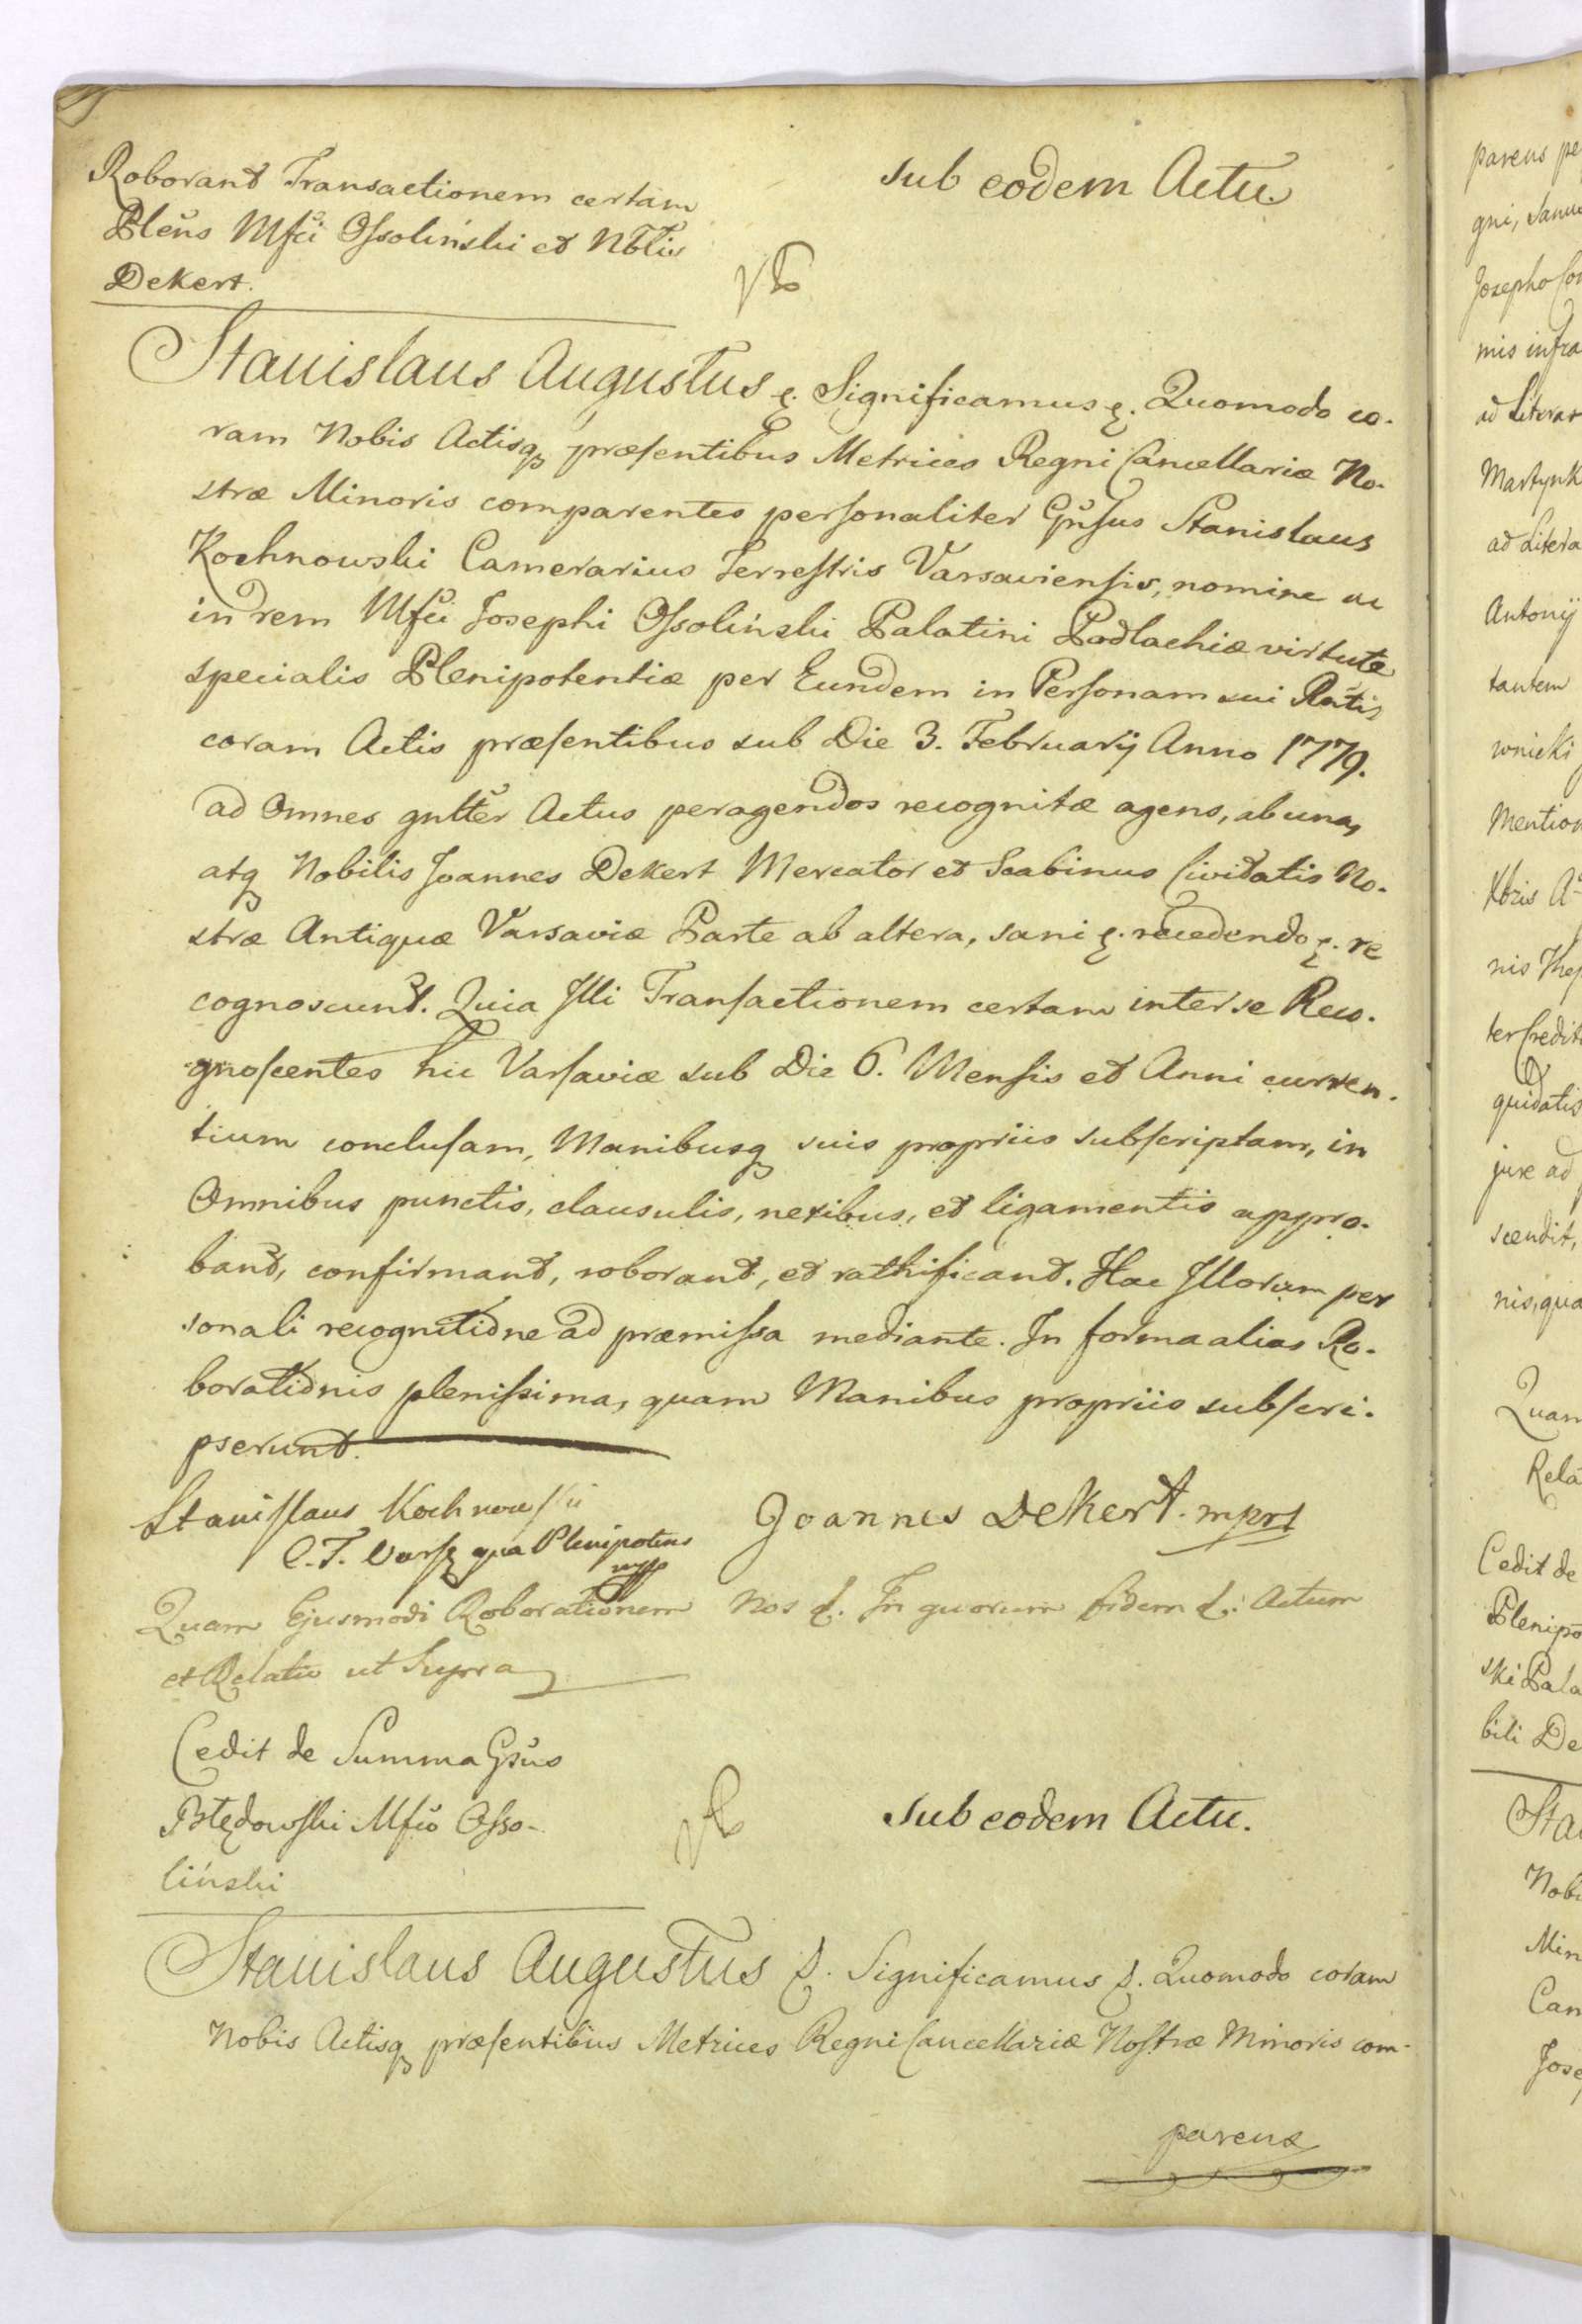 Roborant Transactionem certam
Plens Mfci Ossoliński et Nblis
Dekert.
sub eodem Actu.
Stanislaus Augustus &. Significamus &. Quomodo co-
ram Nobis Actisq præsentibus Metrices Regni Cancellariæ No-
stræ Minoris comparentes personaliter Gnsus Stanislaus
Kochnowski Camerarius Terrestris Varsaviensis, nomine ac
in rem Mfci Josephi Ossoliński Palatini Podlachiæ virtute
specialis Plenipotentiæ per Eundem in Personam sui Rntis
coram Actis præsentibus sub Die 3. Februarij Anno 1779.
ad Omnes gnlter Actus peragendos recognitæ agens, ab una,
atq Nobilis Joannes Dekert Mercator et Scabinus Civitatis No-
stræ Antiquæ Varsaviæ Parte ab altera, sani &. recedendo &. re
cognoscunt. Quia Illi Transactionem certam inter se Reco-
gnoscentes hic Varsaviæ sub Die 6. Mensis et Anni curren-
tium conclusam, Manibusq suis propriis subscriptam, in
Omnibus punctis, clausulis, nexibus, et ligamentis appro-
bant, confirmant, roborant, et rathificant. Hac Illorum per
sonali recognitione ad præmissa mediante. In forma alias Ro-
borationis plenissima, quam Manibus propriis subscri-
pserunt.
Stanislaus Kochnowski
C. T. Vars& qua Plenipotens
mpp
Joannes Dekert. mpri
Quam Ejusmodi Roborationem Nos &. In quorum fidem &. Actum
et Relatio ut Supra
Cedit de Summa Gsus
Błędowski Mfco Osso-
liński
sub eodem Actu.
Stanislaus Augustus &. Significamus &. Quomodo coram
Nobis Actisq præsentibus Metrices Regni Cancellariæ Nostræ Minoris com-
parens
parens
gni,
Josepho
mis infra
ad Literas
Martynk
ad Litera
Antonij
tantem
wnicki
Mention
Xbris
nis
ter Credit
quidatis
jure ad
scendit,
nis, qua
Quam
Rela
Cedit de
Plenipo
ski Pala
bili De
Sta
Nobi
Min
Can
Jose